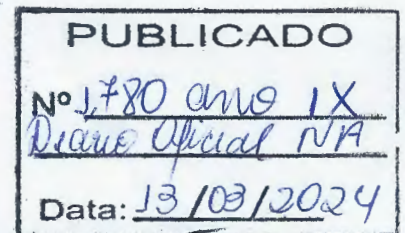 PUBLICADO
Nº 1.780 ano IX
Diário Oficial NA
Data: 13/03/2024